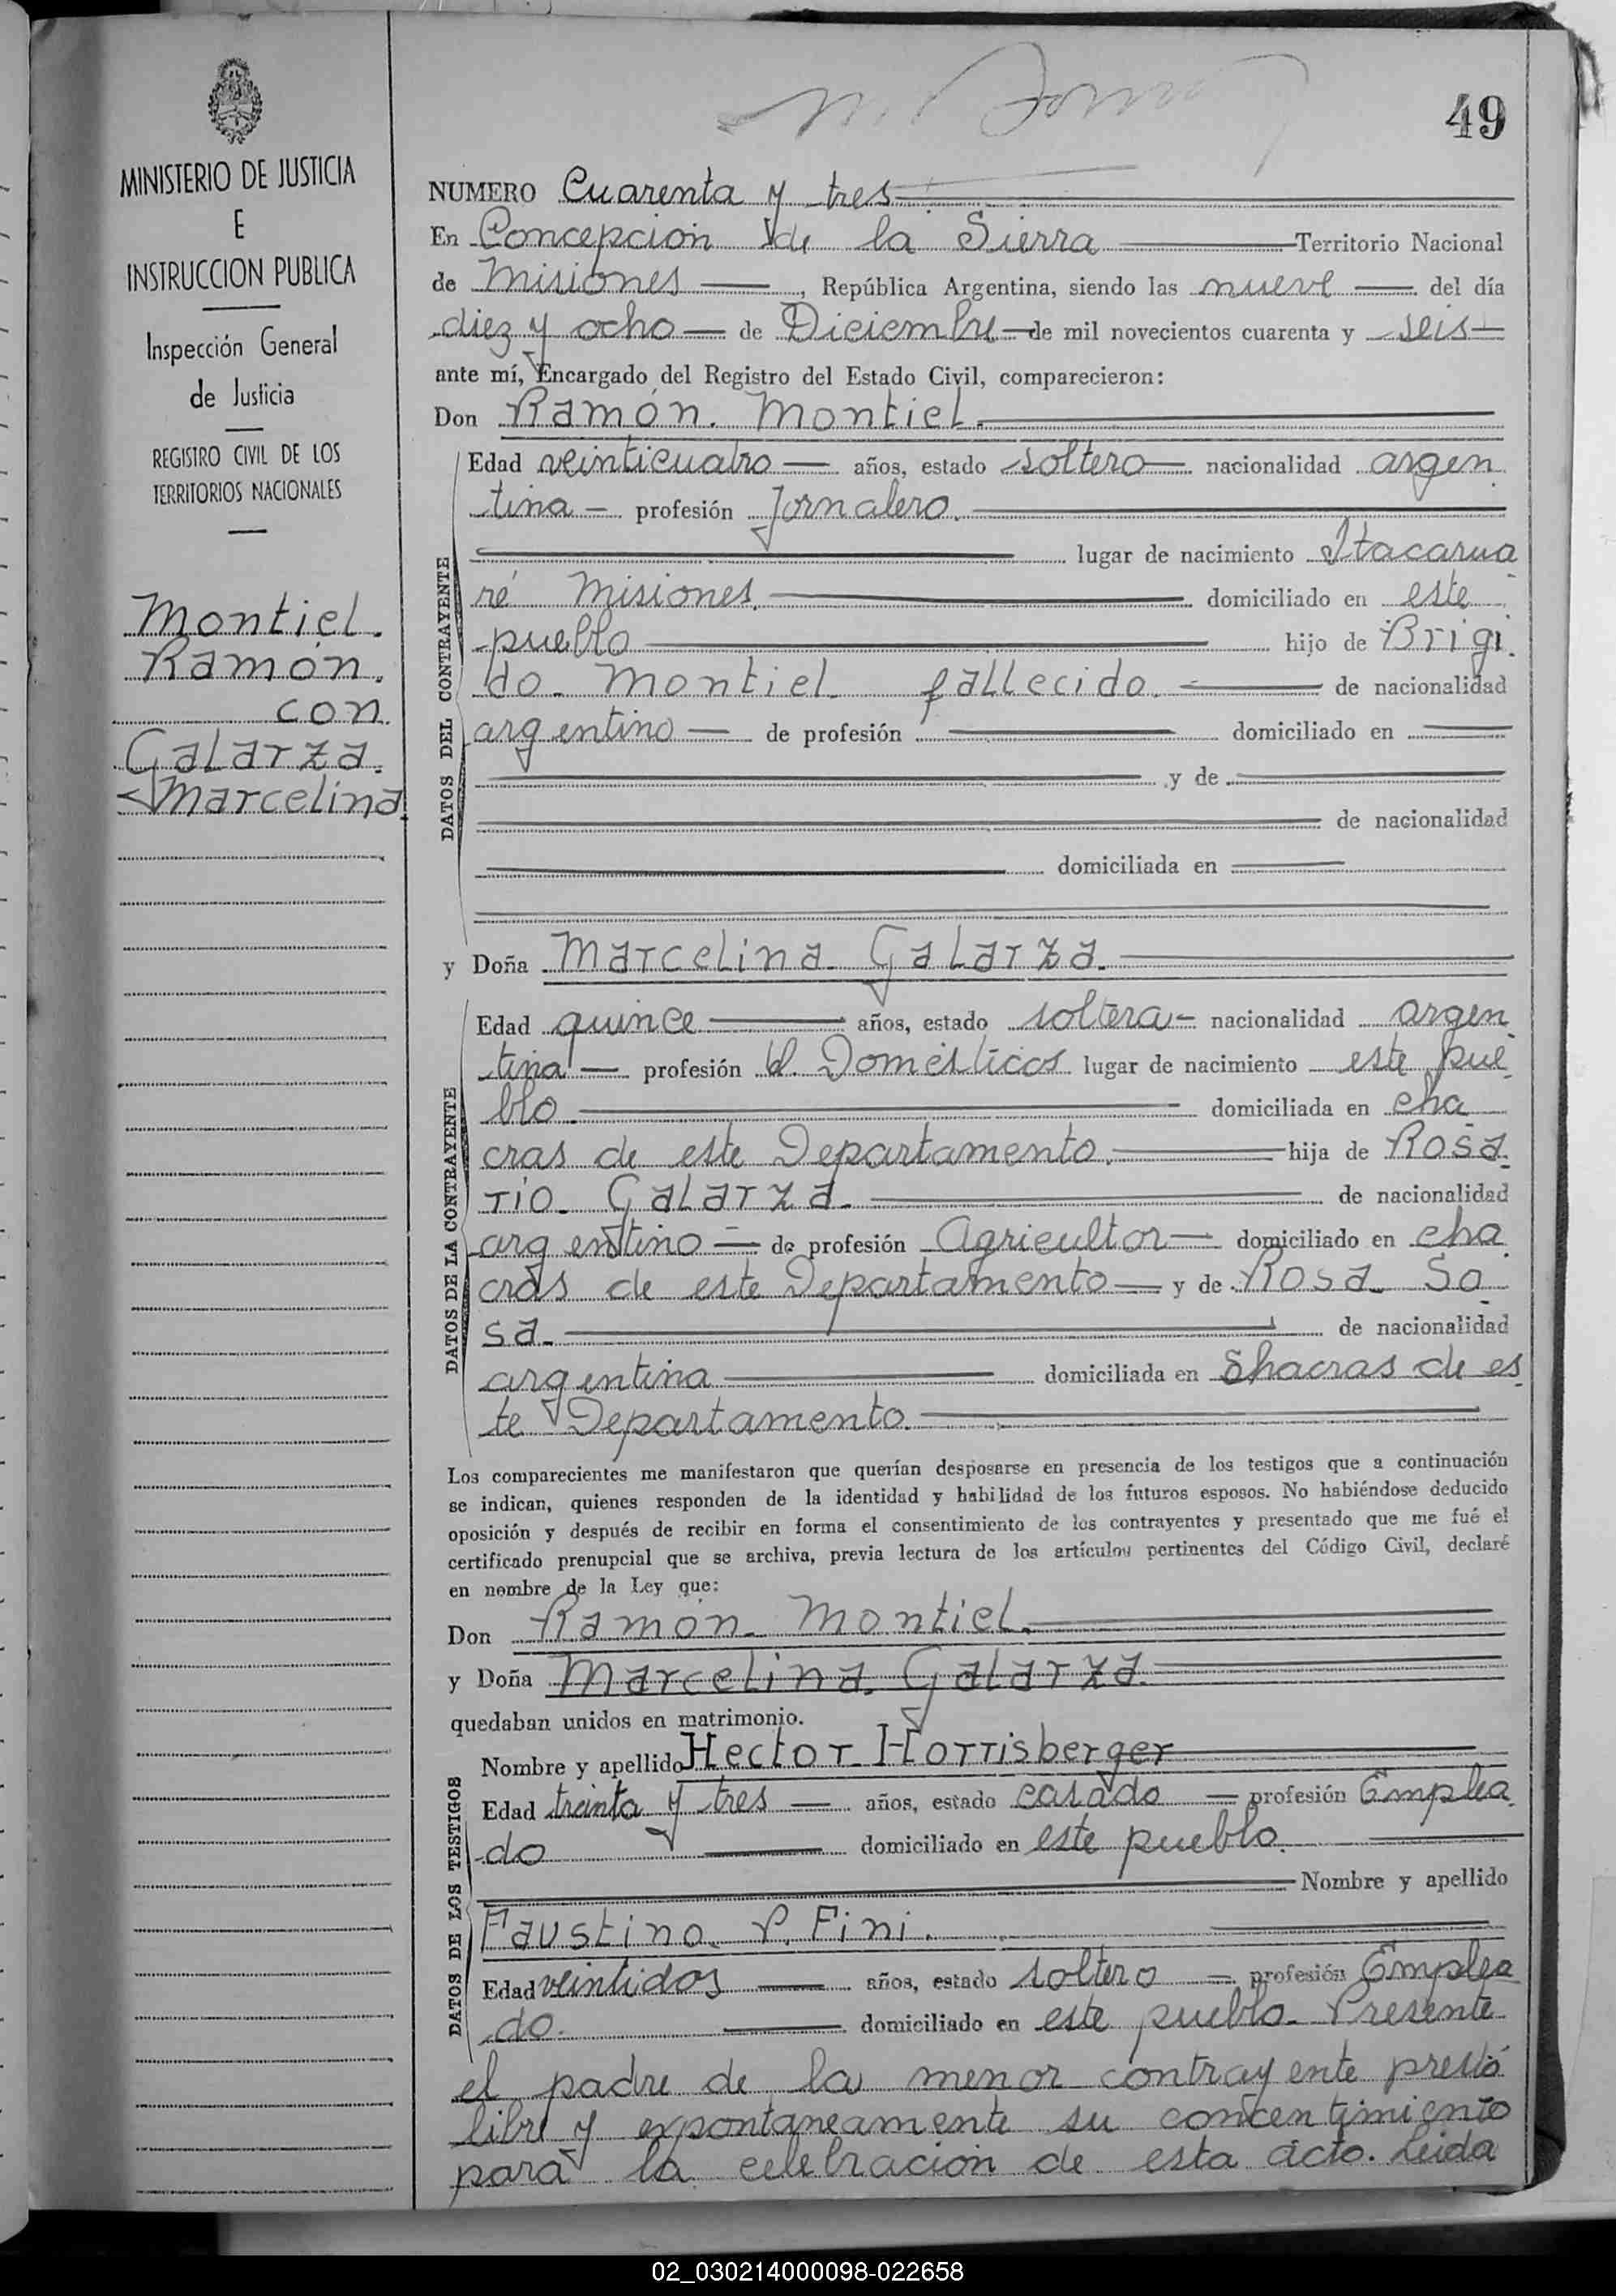 49
MINISTERIO DE JUSTICIA
E
INSTRUCCION PUBLICA
Inspección General
de Justicia
REGISTRO CIVIL DE LOS
TERRITORIOS NACIONALES
Montiel.
Ramón.
con.
Galarza.
Marcelina.
NUMERO Cuarenta y tres
En Concepción de la Sierra Territorio Nacional
de Misiones, República Argentina, siendo las nueve del día
diez y ocho de Diciembre de mil novecientos cuarenta y seis
ante mí, Encargado del Registro del Estado Civil, comparecieron:
Don Ramón. Montiel.
DATOS DEL CONTRAYENTE
Edad veinticuatro años, estado soltero nacionalidad argen
tina profesión Jornalero.
lugar de nacimiento Itacarua
ré Misiones. domiciliado en este
pueblo hijo de Brigi
do. Montiel. fallecido. de nacionalidad
argentino de profesión domiciliado en
y de
de nacionalidad
domiciliada en
y Doña Marcelina. Galarza.
DATOS DE LA CONTRAYENTE
Edad quince años, estado soltera nacionalidad argen
tina profesión Q. Domésticos lugar de nacimiento este pue
blo domiciliada en cha
cras de este Departamento. hija de Rosa
rio. Galarza. de nacionalidad
argentino de profesión Agricultor domiciliado en cha
cras de este Departamento y de Rosa. So
sa. de nacionalidad
argentina domiciliada en Shacras de es
te Departamento.
Los comparecientes me manifestaron que querían desposarse en presencia de los testigos que a continuación
se indican, quienes responden de la identidad y habilidad de los futuros esposos. No habiéndose deducido
oposición y después de recibir en forma el consentimiento de los contrayentes y presentado que me fué el
certificado prenupcial que se archiva, previa lectura de los artículos pertinentes del Código Civil, declaré
en nombre de la Ley que:
Don Ramón. Montiel.
y Doña Marcelina. Galarza.
quedaban unidos en matrimonio.
DATOS DE LOS TESTIGOS
Nombre y apellido Hector Horrisberger
Edad treinta y tres años, estado casado profesión Emplea
do domiciliado en este pueblo.
Nombre y apellido
Faustino. P. Fini.
Edad veintidos años, estado soltero profesión Emplea
do. domiciliado en este pueblo. Presente
el padre de la menor contrayente prestó
libre y expontaneamente su concentimiento
para la celebración de esta acto. Leida
02_030214000098-022658